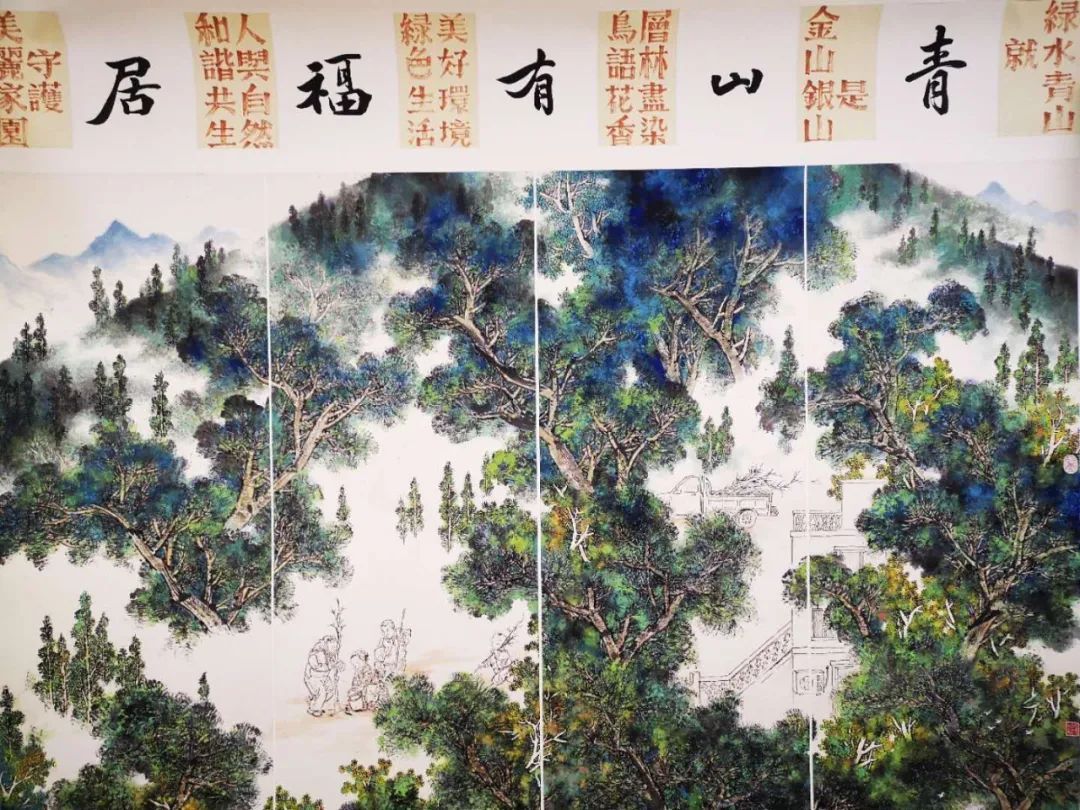 青山有福居
綠水青山
就
是
金山銀山
層林盡染
鳥語花香
美好環境
綠色生活
人與自然
和諧共生
守護
美麗家園